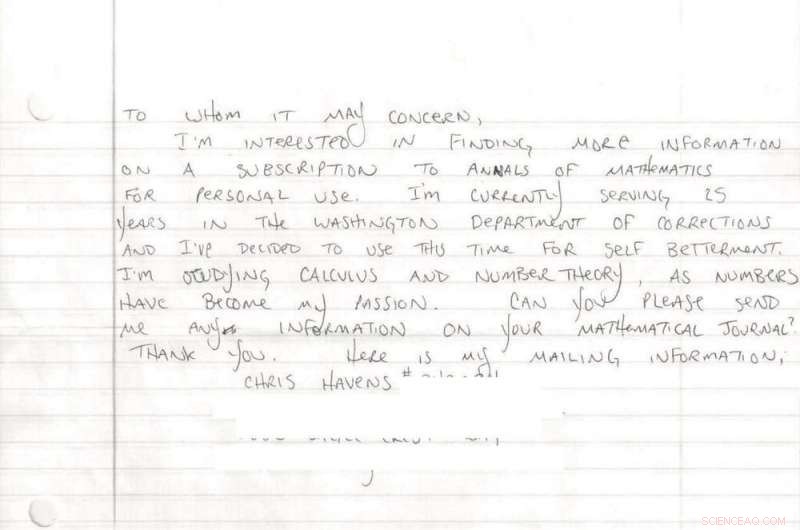 TO WHOM IT MAY CONCERN,
I'M INTERESTED IN FINDING MORE INFORMATION
ON A SUBSCRIPTION TO ANNALS OF MATHEMATICS
FOR PERSONAL USE. I'M CURRENTLY SERVING 25
YEARS IN THE WASHINGTON DEPARTMENT OF CORRECTIONS
AND I'VE DECIDED TO USE THIS TIME FOR SELF BETTERMENT.
I'M STUDYING CALCULUS AND NUMBER THEORY, AS NUMBERS
HAVE BECOME MY PASSION. CAN YOU PLEASE SEND
ME ANY INFORMATION ON YOUR MATHEMATICAL JOURNAL?
THANK YOU. HERE IS MY MAILING INFORMATION;
CHRIS HAVENS #
SCIENCEAQ.COM